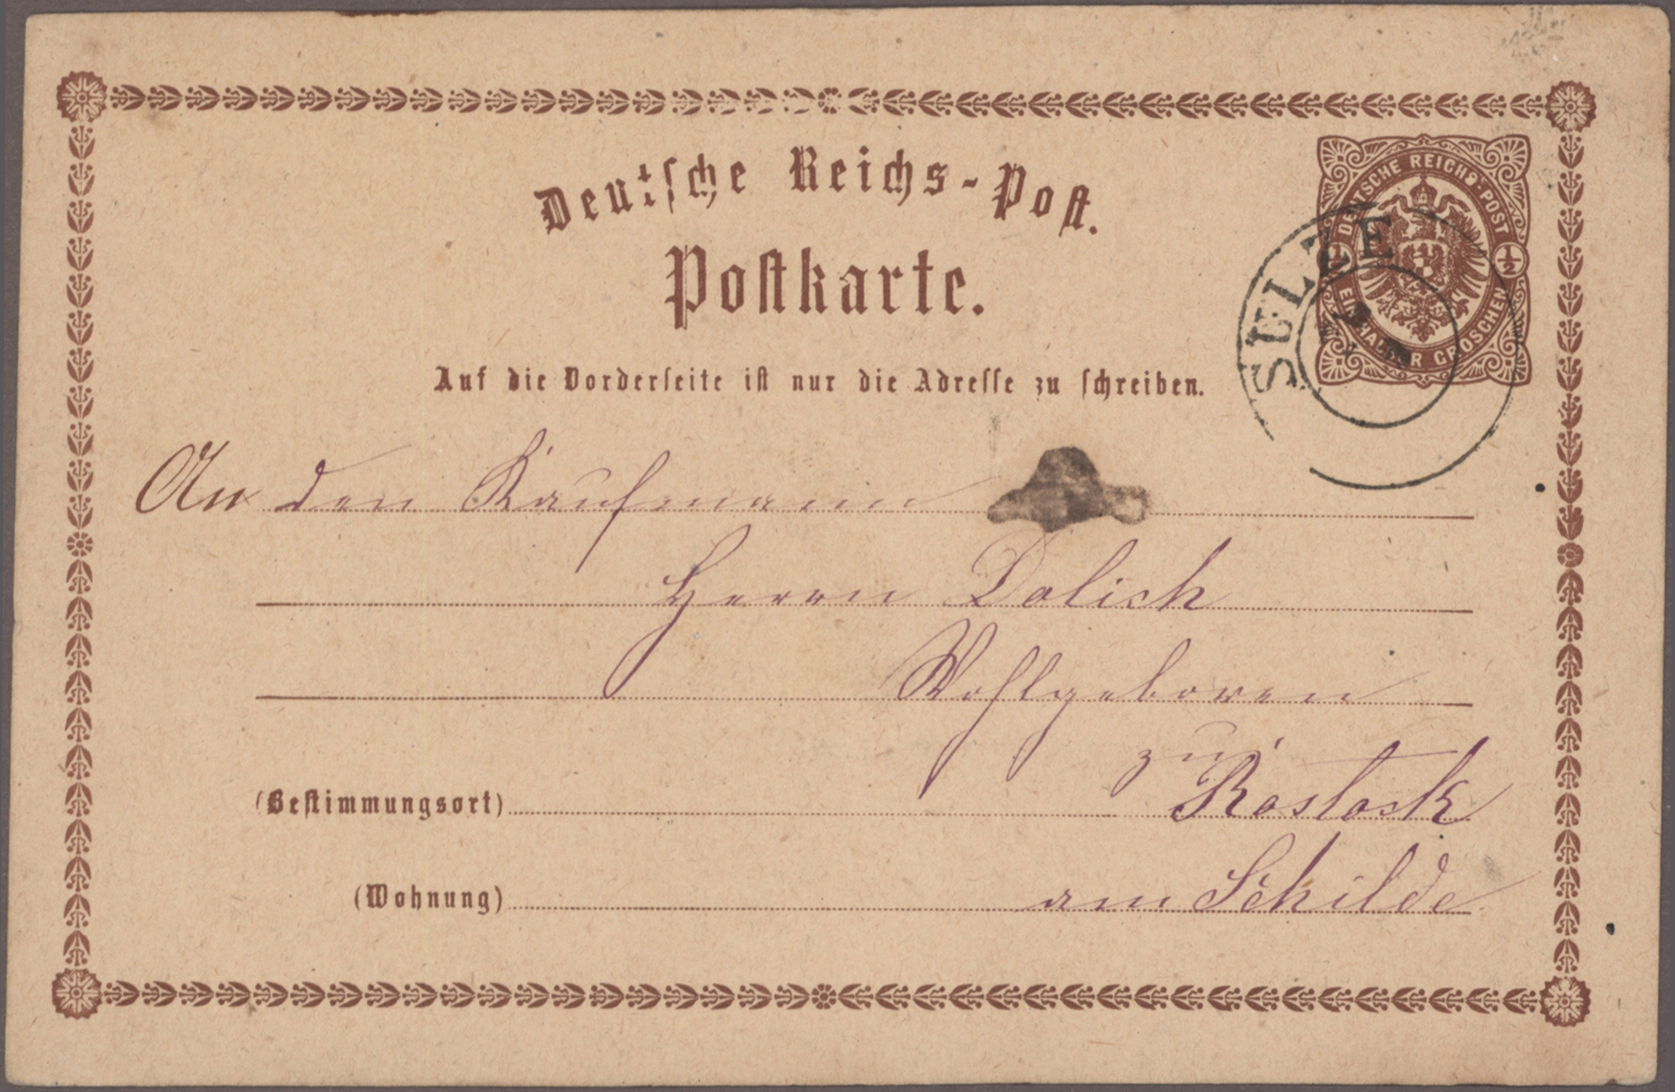 Deutsche Reichs-Post.
Postkarte.
DEUTSCHE REICHS-POST
½ ½
EIN HALBER GROSCHEN
SULZE
Auf die Vorderseite ist nur die Adresse zu schreiben.
An den Kaufmann
Herrn Dolich
Wohlgeboren
zu
(Bestimmungsort) Rostock
(Wohnung) am Schilde